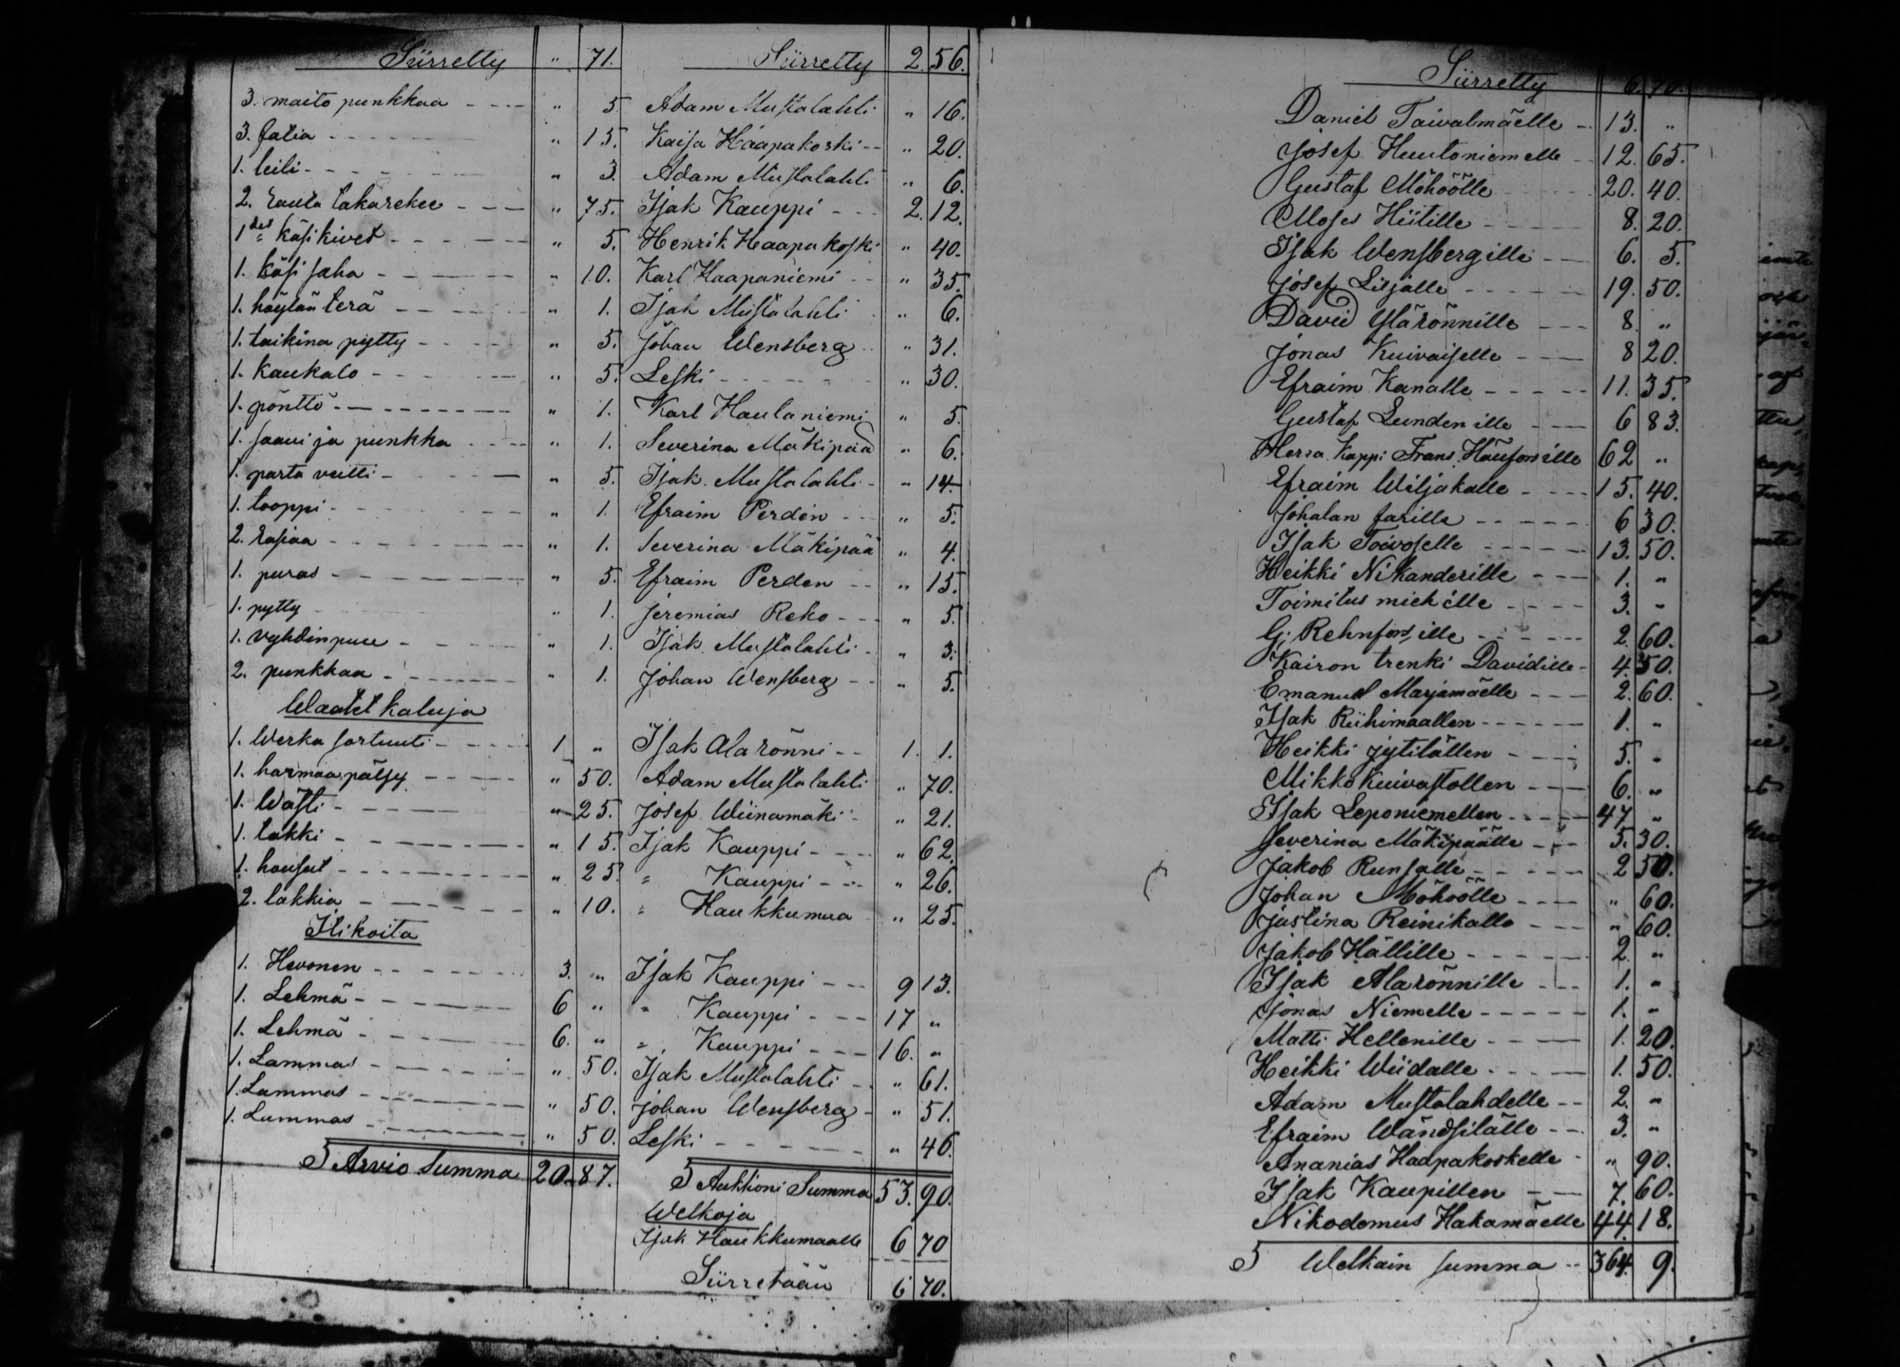 Siirretty " 71. Siirretty 2. 56.
3. maito punkkaa " 5 Adam Mustalahti " 16.
3. fatia " 15. Kaisa Haapakoski " 20.
1. leili " 3. Adam Mustalahti " 6.
2. rauta takarekee " 75. Isak Kauppi 2. 12.
1 det käsikivet " 5. Henrik Haapakoski " 40.
1. käsi saha " 10. Karl Haapaniemi " 35.
1. höylän terä " 1. Isak Mustalahti " 6.
1. taikina pytty " 5. Johan Wensberg " 31.
1. kaukalo " 5. Leski " 30.
1. pönttö " 1. Karl Hautaniemi " 5.
1. saavi ja punkka " 1. Severina Mäkipää " 6.
1. parta veitti " 5. Isak Mustalahti " 14.
1. tooppi " 1. Efraim Perden " 5.
2. rasiaa " 1. Severina Mäkipää " 4.
1. puras " 5. Efraim Perden " 15.
1. pytty " 1. Jeremias Reko " 5.
1. vyhdinpuu " 1. Isak Mustalahti " 3.
2. punkkaa " 1. Johan Wensberg " 5.
Waatet kaluja
1. Werka sortuuti 1 " Isak Alarönni 1. 1.
1. harmaa pälsy " 50. Adam Mustalahti " 70.
1. Wästi " 25. Josef Wiinamäki " 21.
1. takki " 15. Isak Kauppi " 62.
1. housut " 25. " Kauppi " 26.
2. lakkia " 10. " Haukkumaa " 25.
Itikoita
1. Hevonen 3. " Isak Kauppi 9 13.
1. Lehmä 6 " " Kauppi 17 "
1. Lehmä 6. " " Kauppi 16. "
1. Lammas " 50. Isak Mustalahti " 61.
1. Lammas " 50. Johan Wensberg " 51.
1. Lammas " 50. Leski " 46.
S Arvio Summa 20. 87. S Auktioni Summa 53. 90.
Welkoja
Isak Haukkumaalle 6 70
Siirretään 6 70.
Siirretty 6. 70.
Daniel Taivalmäelle 13. "
Josef Huutoniemelle 12. 65.
Gustaf Möhöölle 20. 40.
Moses Hiitille 8. 20.
Isak Wensbergille 6. 5.
Josef Liljalle 19. 50.
David Ylärönnille 8. "
Jonas Kuivaiselle 8 20.
Efraim Kanalle 11. 35.
Gustaf Lundenille 6 83.
Herra Kappi Frans Häuforsille 62 "
Efraim Wiljakalle 15. 40.
Johalan farille 6 30.
Isak Toivoselle 13. 50.
Heikki Nikanderille 1. "
Toimitus miehille 3. "
G. Rehnforsille 2 60.
Kairon trenki Davidille 4. 50.
Emanuel Marjamäelle 2. 60.
Isak Riihimaallen 1. "
Heikki Jytilällen 5. "
Mikko Kuivastollen 6. "
Isak Leponiemellen 47 "
Severina Mäkipäälle 5. 30.
Jakob Runsalle 2 50.
Johan Möhöölle " 60.
Justina Reinikalle " 60.
Jakob Hällille 2 "
Isak Alarönnille 1. "
Jonas Niemelle 1. "
Matti Hellenille 1. 20.
Heikki Wiidalle 1. 50.
Adam Mustalahdelle 2. "
Efraim Wändsilälle 3. "
Ananias Haapakoskelle " 90.
Isak Kaupillen 7. 60.
Nikodemus Hakamäelle 44. 18.
S Welkain Summa 364. 9.